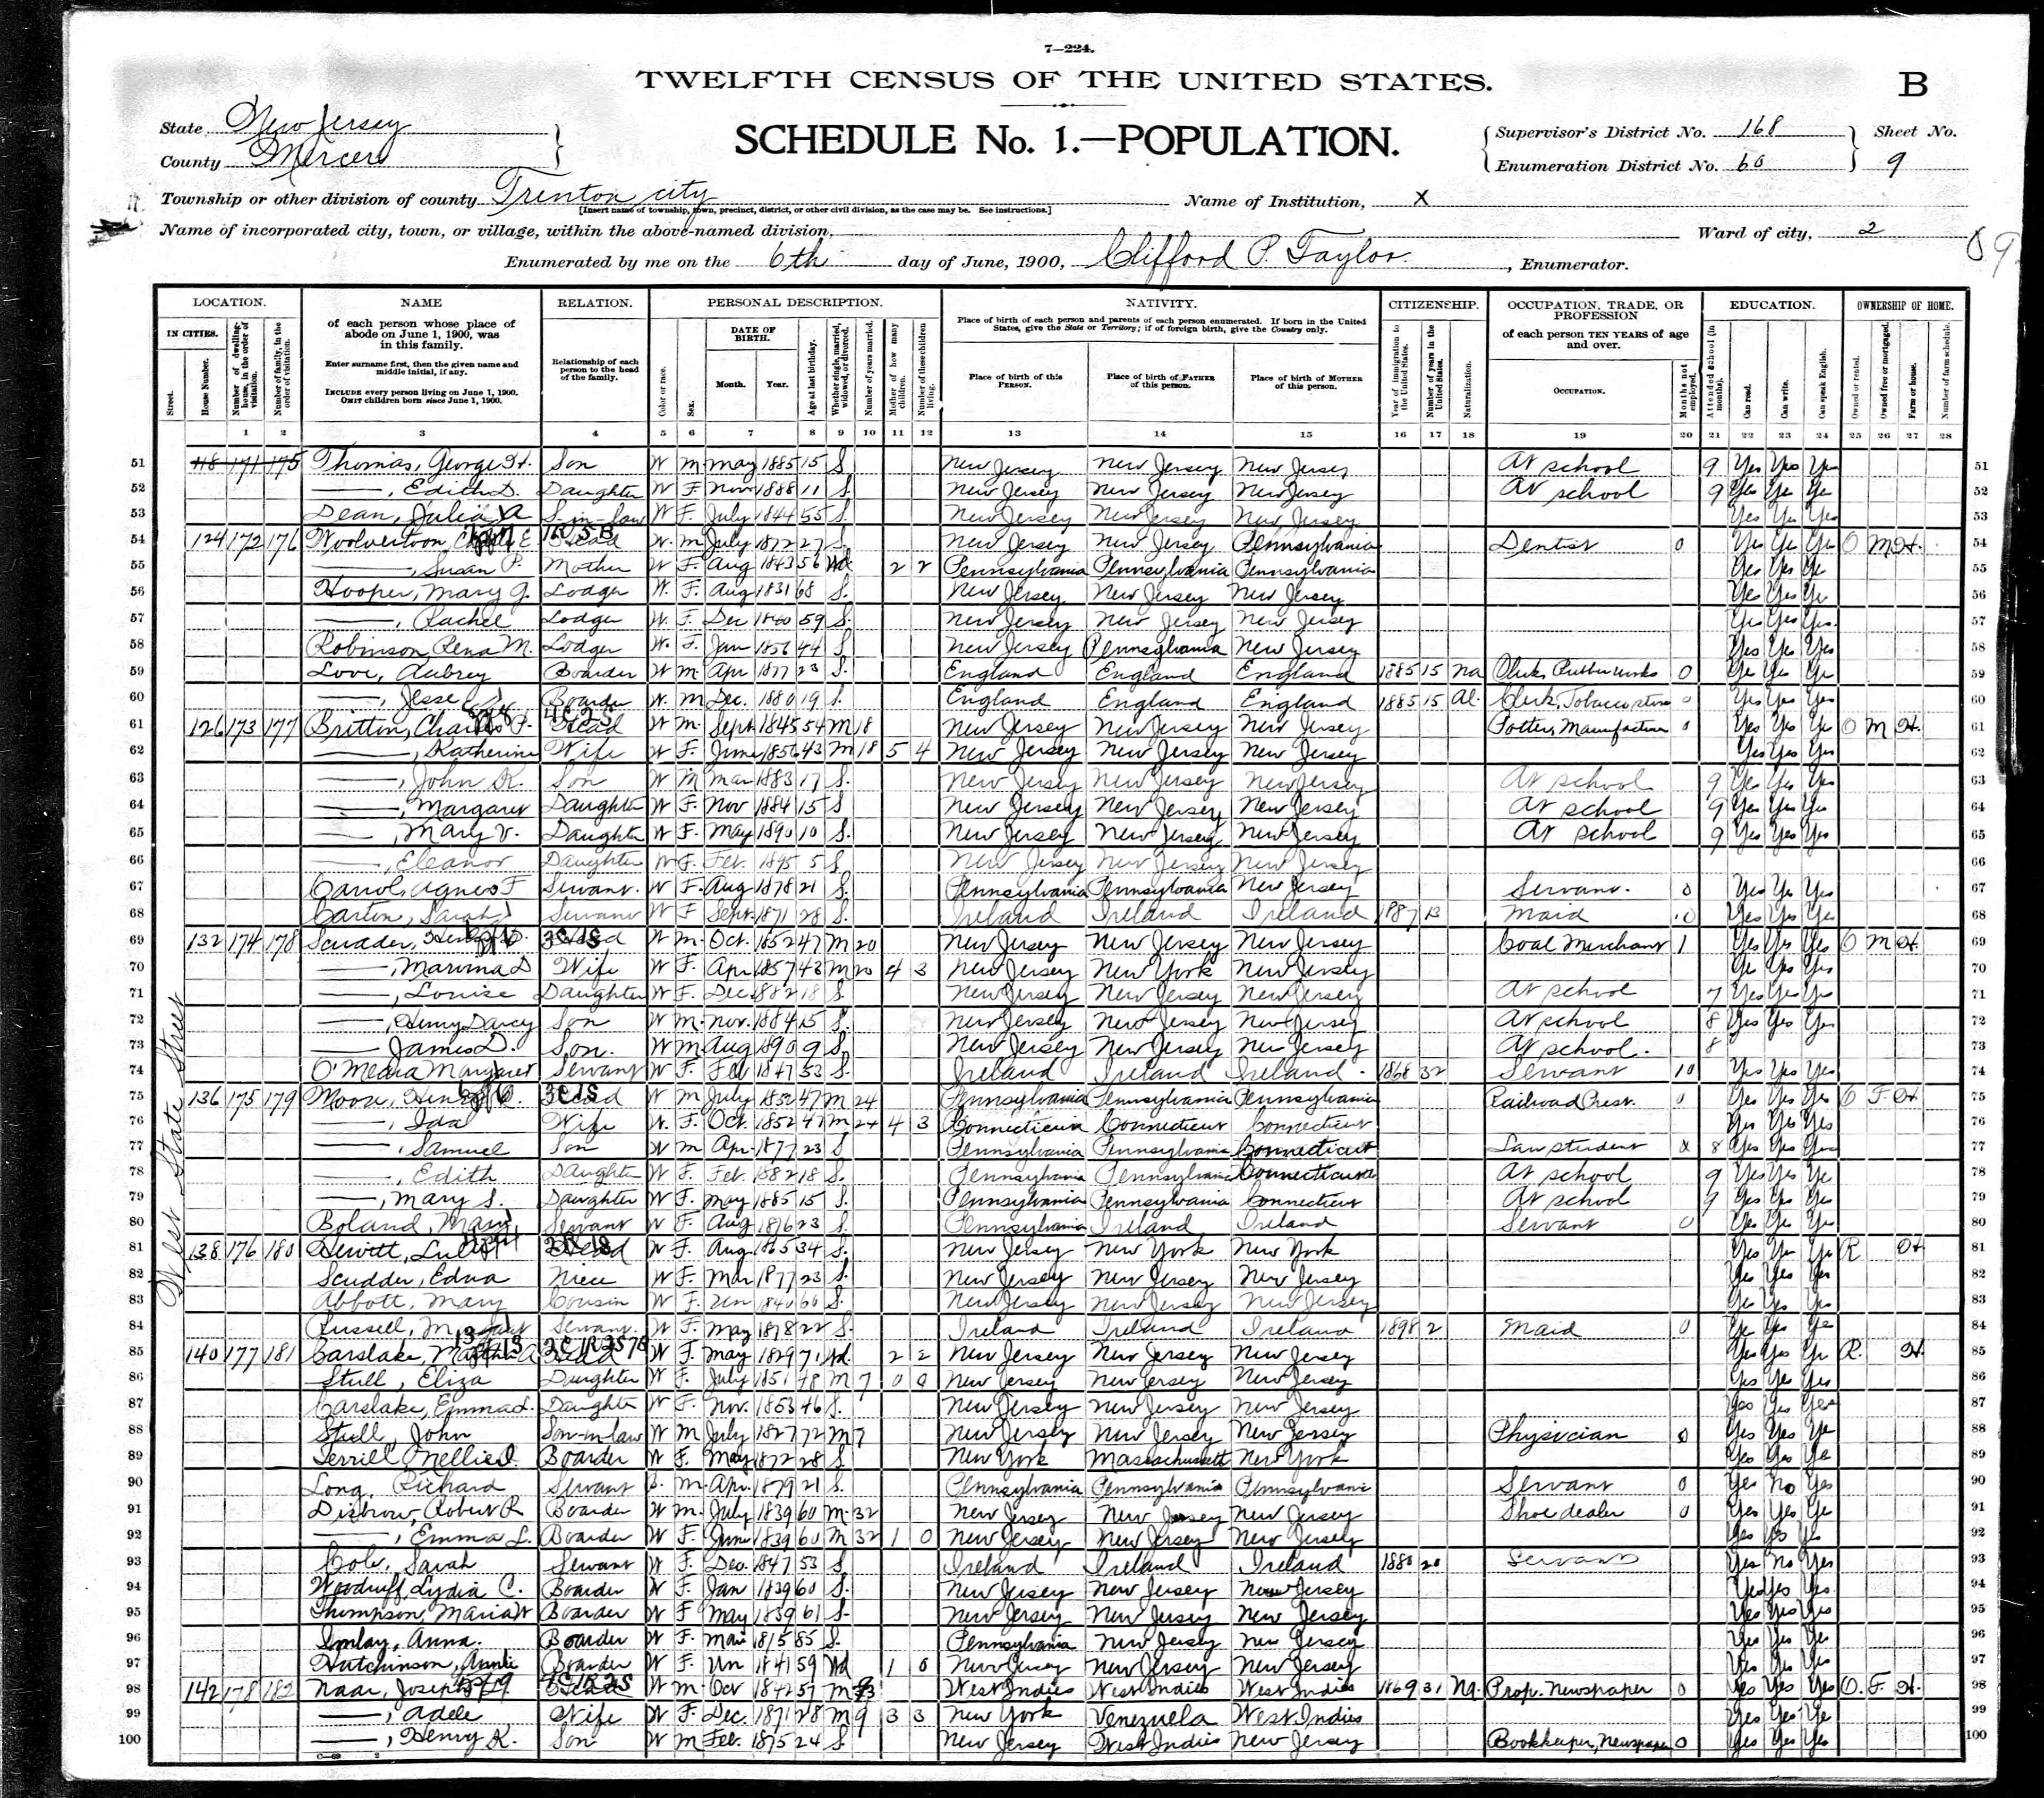 7—224.
TWELFTH CENSUS OF THE UNITED STATES.
B
State New Jersey
County Mercer
SCHEDULE No. 1.—POPULATION.
Supervisor's District No. 168
Enumeration District No. 60
Sheet No.
9
Township or other division of county Trenton city
[Insert name of township, town, precinct, district, or other civil division, as the case may be. See instructions.]
Name of Institution, X
Name of incorporated city, town, or village, within the above-named division,
Ward of city, 2
Enumerated by me on the 6th day of June, 1900, Clifford P. Taylor, Enumerator.
LOCATION. NAME RELATION. PERSONAL DESCRIPTION. NATIVITY. CITIZENSHIP. OCCUPATION, TRADE, OR PROFESSION EDUCATION. OWNERSHIP OF HOME.
IN CITIES.
Street.
House Number.
Number of dwelling-house, in the order of visitation.
Number of family, in the order of visitation.
of each person whose place of abode on June 1, 1900, was in this family.
Enter surname first, then the given name and middle initial, if any.
INCLUDE every person living on June 1, 1900.
OMIT children born since June 1, 1900.
Relationship of each person to the head of the family.
Color or race.
Sex.
DATE OF BIRTH.
Month. Year.
Age at last birthday.
Whether single, married, widowed, or divorced.
Number of years married.
Mother of how many children.
Number of these children living.
Place of birth of each person and parents of each person enumerated. If born in the United States, give the State or Territory; if of foreign birth, give the Country only.
Place of birth of this PERSON.
Place of birth of FATHER of this person.
Place of birth of MOTHER of this person.
Year of immigration to the United States.
Number of years in the United States.
Naturalization.
of each person TEN YEARS of age and over.
OCCUPATION.
Months not employed.
Attended school (in months).
Can read.
Can write.
Can speak English.
Owned or rented.
Owned free or mortgaged.
Farm or house.
Number of farm schedule.
1 2 3 4 5 6 7 8 9 10 11 12 13 14 15 16 17 18 19 20 21 22 23 24 25 26 27 28
West State Street
51 118 171 175 Thomas, George H. Son W M May 1885 15 S. New Jersey New Jersey New Jersey At school 9 Yes Yes Yes 51
52 ——, Edith D. Daughter W F. Nov 1888 11 S. New Jersey New Jersey New Jersey At school 9 Yes Ye Ye 52
53 Dean, Julia A S-in-law W F. July 1844 55 S. New Jersey New Jersey New Jersey Yes Yes Yes 53
54 124 172 176 Woolvertoon E Head W. M July 1872 27 S. New Jersey New Jersey Pennsylvania Dentist 0 Yes Ye Ye O M H. 54
55 ——, Susan P. Mother W F. Aug 1843 56 Wd. 2 2 Pennsylvania Pennsylvania Pennsylvania Yes Yes Ye 55
56 Hooper, Mary G. Lodger W. F. Aug 1831 68 S. New Jersey New Jersey New Jersey Yes Yes Ye 56
57 ——, Rachel Lodger W. F. Dec 59 S. New Jersey New Jersey New Jersey Yes Yes Yes. 57
58 Robinson, Rena M. Lodger W. F. Jan 1856 44 S New Jersey Pennsylvania New Jersey Yes Yes Yes 58
59 Love, Aubrey Boarder W M Apr 1877 23 S. England England England 1885 15 Na Clerk, Rubber works 0 Ye Yes Ye 59
60 ——, Jesse Boarder W. M Dec. 1880 19 S. England England England 1885 15 Al. Clerk, Tobacco store 0 Yes Yes Ye 60
61 126 173 177 Britton, Charles F. Head W M. Sept. 1845 54 M 18 New Jersey New Jersey New Jersey Potter, Manufacturer 0 Yes Yes Ye O M H. 61
62 ——, Katherine Wife W F. June 1856 43 M 18 5 4 New Jersey New Jersey New Jersey Yes Yes Yes 62
63 ——, John K. Son W M Mar 1883 17 S. New Jersey New Jersey New Jersey At school 9 Yes Yes Yes 63
64 ——, Margaret Daughter W F. Nov 1884 15 S New Jersey New Jersey New Jersey At school 9 Yes Yes Yes 64
65 ——, Mary V. Daughter W F. May 1890 10 S. New Jersey New Jersey New Jersey At school 9 Yes Yes Yes 65
66 ——, Eleanor Daughter W F. Feb. 1895 5 S New Jersey New Jersey New Jersey 66
67 Carrol, Agnes F Servant. W F. Aug 1878 21 S. Pennsylvania Pennsylvania New Jersey Servant. 0 Yes Ye Yes 67
68 Carton, Sarah Servant W F Sept. 1871 28 S. Ireland Ireland Ireland 1887 13 Maid 0 Yes Yes Yes 68
69 132 174 178 Scudder, Henry D. Head W M. Oct. 1852 47 M 20 New Jersey New Jersey New Jersey Coal Merchant 1 Yes Yes Yes O M H 69
70 ——, D Wife W F. Apr 1857 43 M 20 4 3 New Jersey New York New Jersey Ye Yes Yes 70
71 ——, Louise Daughter W F. Dec. 1882 18 S. New Jersey New Jersey New Jersey At school 7 Yes Yes Yes 71
72 ——, Henry Darcy Son W M. Nov. 1884 15 S. New Jersey New Jersey New Jersey At school 8 Yes Yes Yes 72
73 —— James D. Son. W M Aug 1890 9 S. New Jersey New Jersey New Jersey At school. 8 73
74 O'Meara Margaret Servant W F. Feb 1847 53 S. Ireland Ireland Ireland. 1868 32 Servant 10 Yes Yes Yes 74
75 136 175 179 Moon, Head W M July 1852 47 M 24 Pennsylvania Pennsylvania Pennsylvania Railroad Prest. 0 Yes Yes Yes O F. H 75
76 ——, Ida Wife W. F. Oct. 1852 47 M 24 4 3 Connecticut Connecticut Connecticut Yes Yes Yes 76
77 ——, Samuel Son W M Apr. 1877 23 S Pennsylvania Pennsylvania Connecticut Law student 8 Yes Yes Yes 77
78 ——, Edith Daughter W F. Feb. 1882 18 S. Pennsylvania Pennsylvania Connecticut At school 9 Yes Yes Ye 78
79 ——, Mary S. Daughter W F. May 1885 15 S. Pennsylvania Pennsylvania Connecticut At school 9 Yes Yes Yes 79
80 Boland, Mary Servant W F. Aug 1876 23 S. Pennsylvania Ireland Ireland Servant 0 Yes Ye Ye 80
81 138 176 180 Hewitt, Head W F. Aug 1865 34 S. New Jersey New York New York Yes Ye Ye R H. 81
82 Scudder, Edna Niece W F. Mar 1877 23 S. New Jersey New Jersey New Jersey Yes Yes Yes 82
83 Abbott, Mary Cousin W F. Un 1840 60 S. New Jersey New Jersey New Jersey Ye Yes Yes 83
84 Russell, Servant. W F. May 1878 22 S. Ireland Ireland Ireland 1898 2 Maid 0 Ye Yes Ye 84
85 140 177 181 Carslake, Martha A Head W F. May 1829 71 Wd. 2 2 New Jersey New Jersey New Jersey Yes Yes Ye R. H. 85
86 Stull, Eliza Daughter W F. July 1851 48 M 7 0 0 New Jersey New Jersey New Jersey Yes Yes Yes 86
87 Carslake, Emma L. Daughter W F. Nov. 1853 46 S. New Jersey New Jersey New Jersey Yes Yes Yes 87
88 Stull, John Son-in-law W M July 1827 72 M 7 New Jersey New Jersey New Jersey Physician 0 Yes Yes Ye 88
89 Terrill Nellie Boarder W F. May 1872 28 S. New York Massachusetts New York Yes Yes Ye 89
90 Long, Richard Servant B. M. Apr. 1879 21 S. Pennsylvania Pennsylvania Pennsylvania Servant 0 Yes No Yes 90
91 Disbrow, Robert R Boarder W M. July 1839 60 M. 32 New Jersey New Jersey New Jersey Shoe dealer 0 Yes Yes Ye 91
92 ——, Emma L. Boarder W F. June 1839 60 M 32 1 0 New Jersey New Jersey New Jersey Yes Yes Ye 92
93 Cole, Sarah Servant W F. Dec. 1847 53 S Ireland Ireland Ireland 1880 20 Servant Yes No Yes 93
94 Woodruff, Lydia C. Boarder W F. Jan 1839 60 S. New Jersey New Jersey New Jersey Yes Yes Yes. 94
95 Thompson, Maria W Boarder W F May 1839 61 S. New Jersey New Jersey New Jersey Yes Yes Yes 95
96 Imlay, Anna. Boarder W F. Mar 1815 85 S. Pennsylvania New Jersey New Jersey Yes Yes Ye 96
97 Hutchinson, Annie Boarder W F. Un 1841 59 Wd 1 0 New Jersey New Jersey New Jersey Yes Yes Yes 97
98 142 178 182 Naar, Joseph Head W M. Oct 1842 57 M West Indies West Indies West Indies 1869 31 Na. Prop. Newspaper 0 Yes Yes Yes O. F. H. 98
99 ——, Adele Wife W F. Dec. 1871 28 M 9 3 3 New York Venezuela West Indies Yes Yes Ye 99
100 ——, Henry K. Son W M Feb. 1875 24 S New Jersey West Indies New Jersey Bookkeeper, Newspaper 0 Yes Yes Yes 100